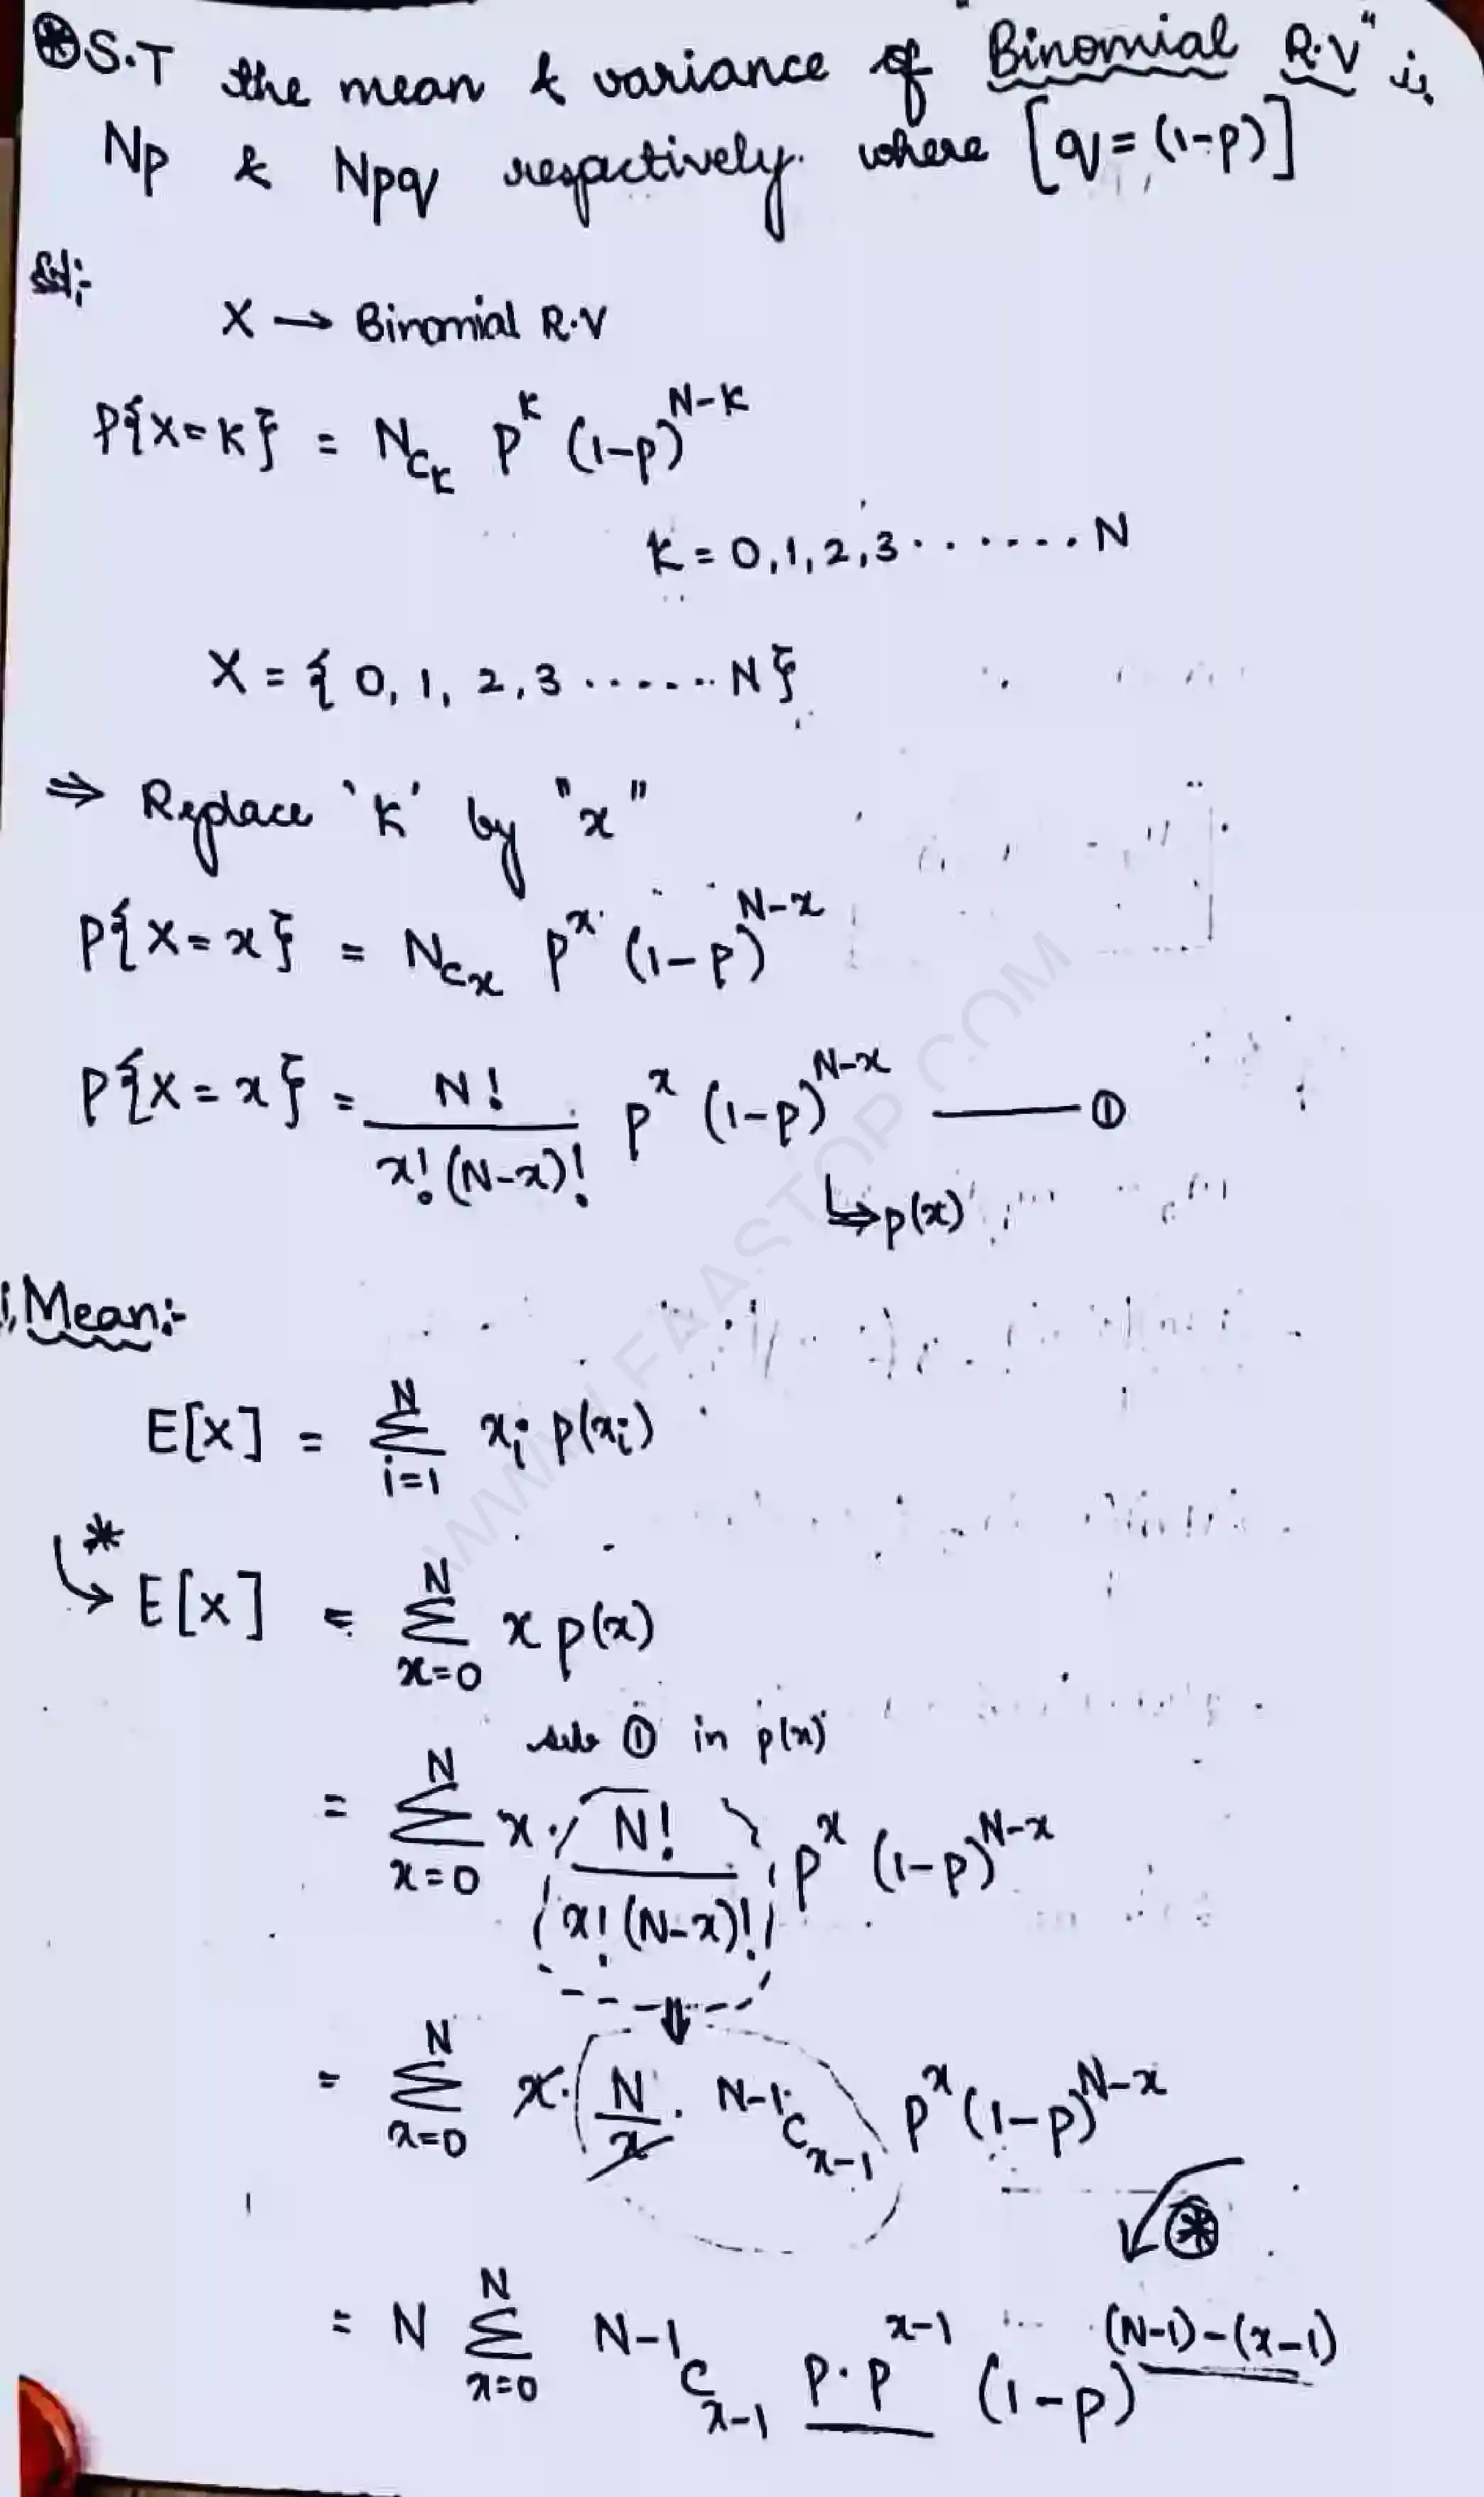 ⊛ S.T the mean & variance of "Binomial R.V" is
Np & Npq respectively. where [q = (1-p)]
Sol:-
X → Binomial R.V
P{X=K} = N_C_K p^K (1-p)^{N-K}
K = 0,1,2,3.......N
X = {0, 1, 2, 3 ...... N}
⇒ Replace 'K' by "x"
P{X=x} = N_C_x p^x (1-p)^{N-x}
P{X=x} = \frac{N!}{x!(N-x)!} p^x (1-p)^{N-x} ——— ①
↳ p(x)
i, Mean:-
E[X] = \sum_{i=1}^{N} x_i p(x_i)
* ↳ E[X] = \sum_{x=0}^{N} x p(x)
sub ① in p(x)
= \sum_{x=0}^{N} x · \frac{N!}{x!(N-x)!} p^x (1-p)^{N-x}
⇓
= \sum_{x=0}^{N} x · \frac{N}{x} · N-1_C_{x-1} p^x (1-p)^{N-x}
⊛
= N \sum_{x=0}^{N} N-1_C_{x-1} p·p^{x-1} (1-p)^{(N-1)-(x-1)}
WWW.FAASTOP.COM